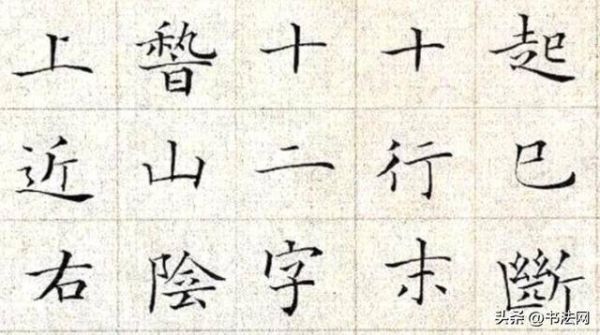 起已斷
十行末
十二字
稽山陰
上近右
头条 @书法网